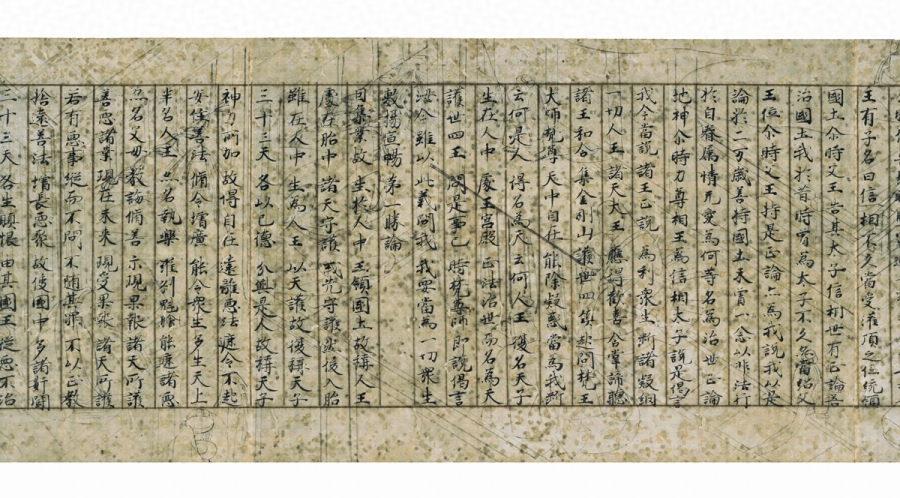 王有子名曰信相不久當受灌頂之位統領
國土尒時父王告其太子信相世有正論善
治國土我於昔時曾為太子不久亦當紹父
王位尒時父王持是正論亦為我說我以是
論於二万歲善持國土未曾一念以非法行
於自眷属情无愛著何等名為治世正論
地神尒時力尊相王為信相太子說是偈言
我今當說 諸王正說 為利衆生 斷諸疑網
一切人王 諸天天王 應得歡喜 合掌諦聽
諸王和合 集金剛山 護世四鎮 起問梵王
大師梵尊 天中自在 能除疑惑 當為我斷
云何是人 得名為天 云何人王 復名天子
生在人中 處王宮殿 正法治世 而名為天
護世四王 問是事已 時梵尊師 即說偈言
汝今雖以 此義問我 我要當為 一切衆生
敷揚宣暢 第一勝論
因集業故 生於人中 王領國土 故稱人王
處在胎中 諸天守護 或先守護 然後入胎
雖在人中 生為人王 以天護故 復稱天子
三十三天 各以己德 分與是人 故稱天子
神力所加 故得自在 遠離惡法 遮令不起
安住善法 脩令增廣 能令衆生 多生天上
半名人王 亦名執樂 羅刹魁膾 能遮諸惡
亦名父母 教誨脩善 示現果報 諸天所護
善惡諸業 現在未來 現受果報 諸天所護
若有惡事 縱而不問 不其罪 不以正教
捨遠善法 增長惡聚 故使國中 多諸姧鬪
三十三天 各生瞋恨 由其國王 縱惡不治